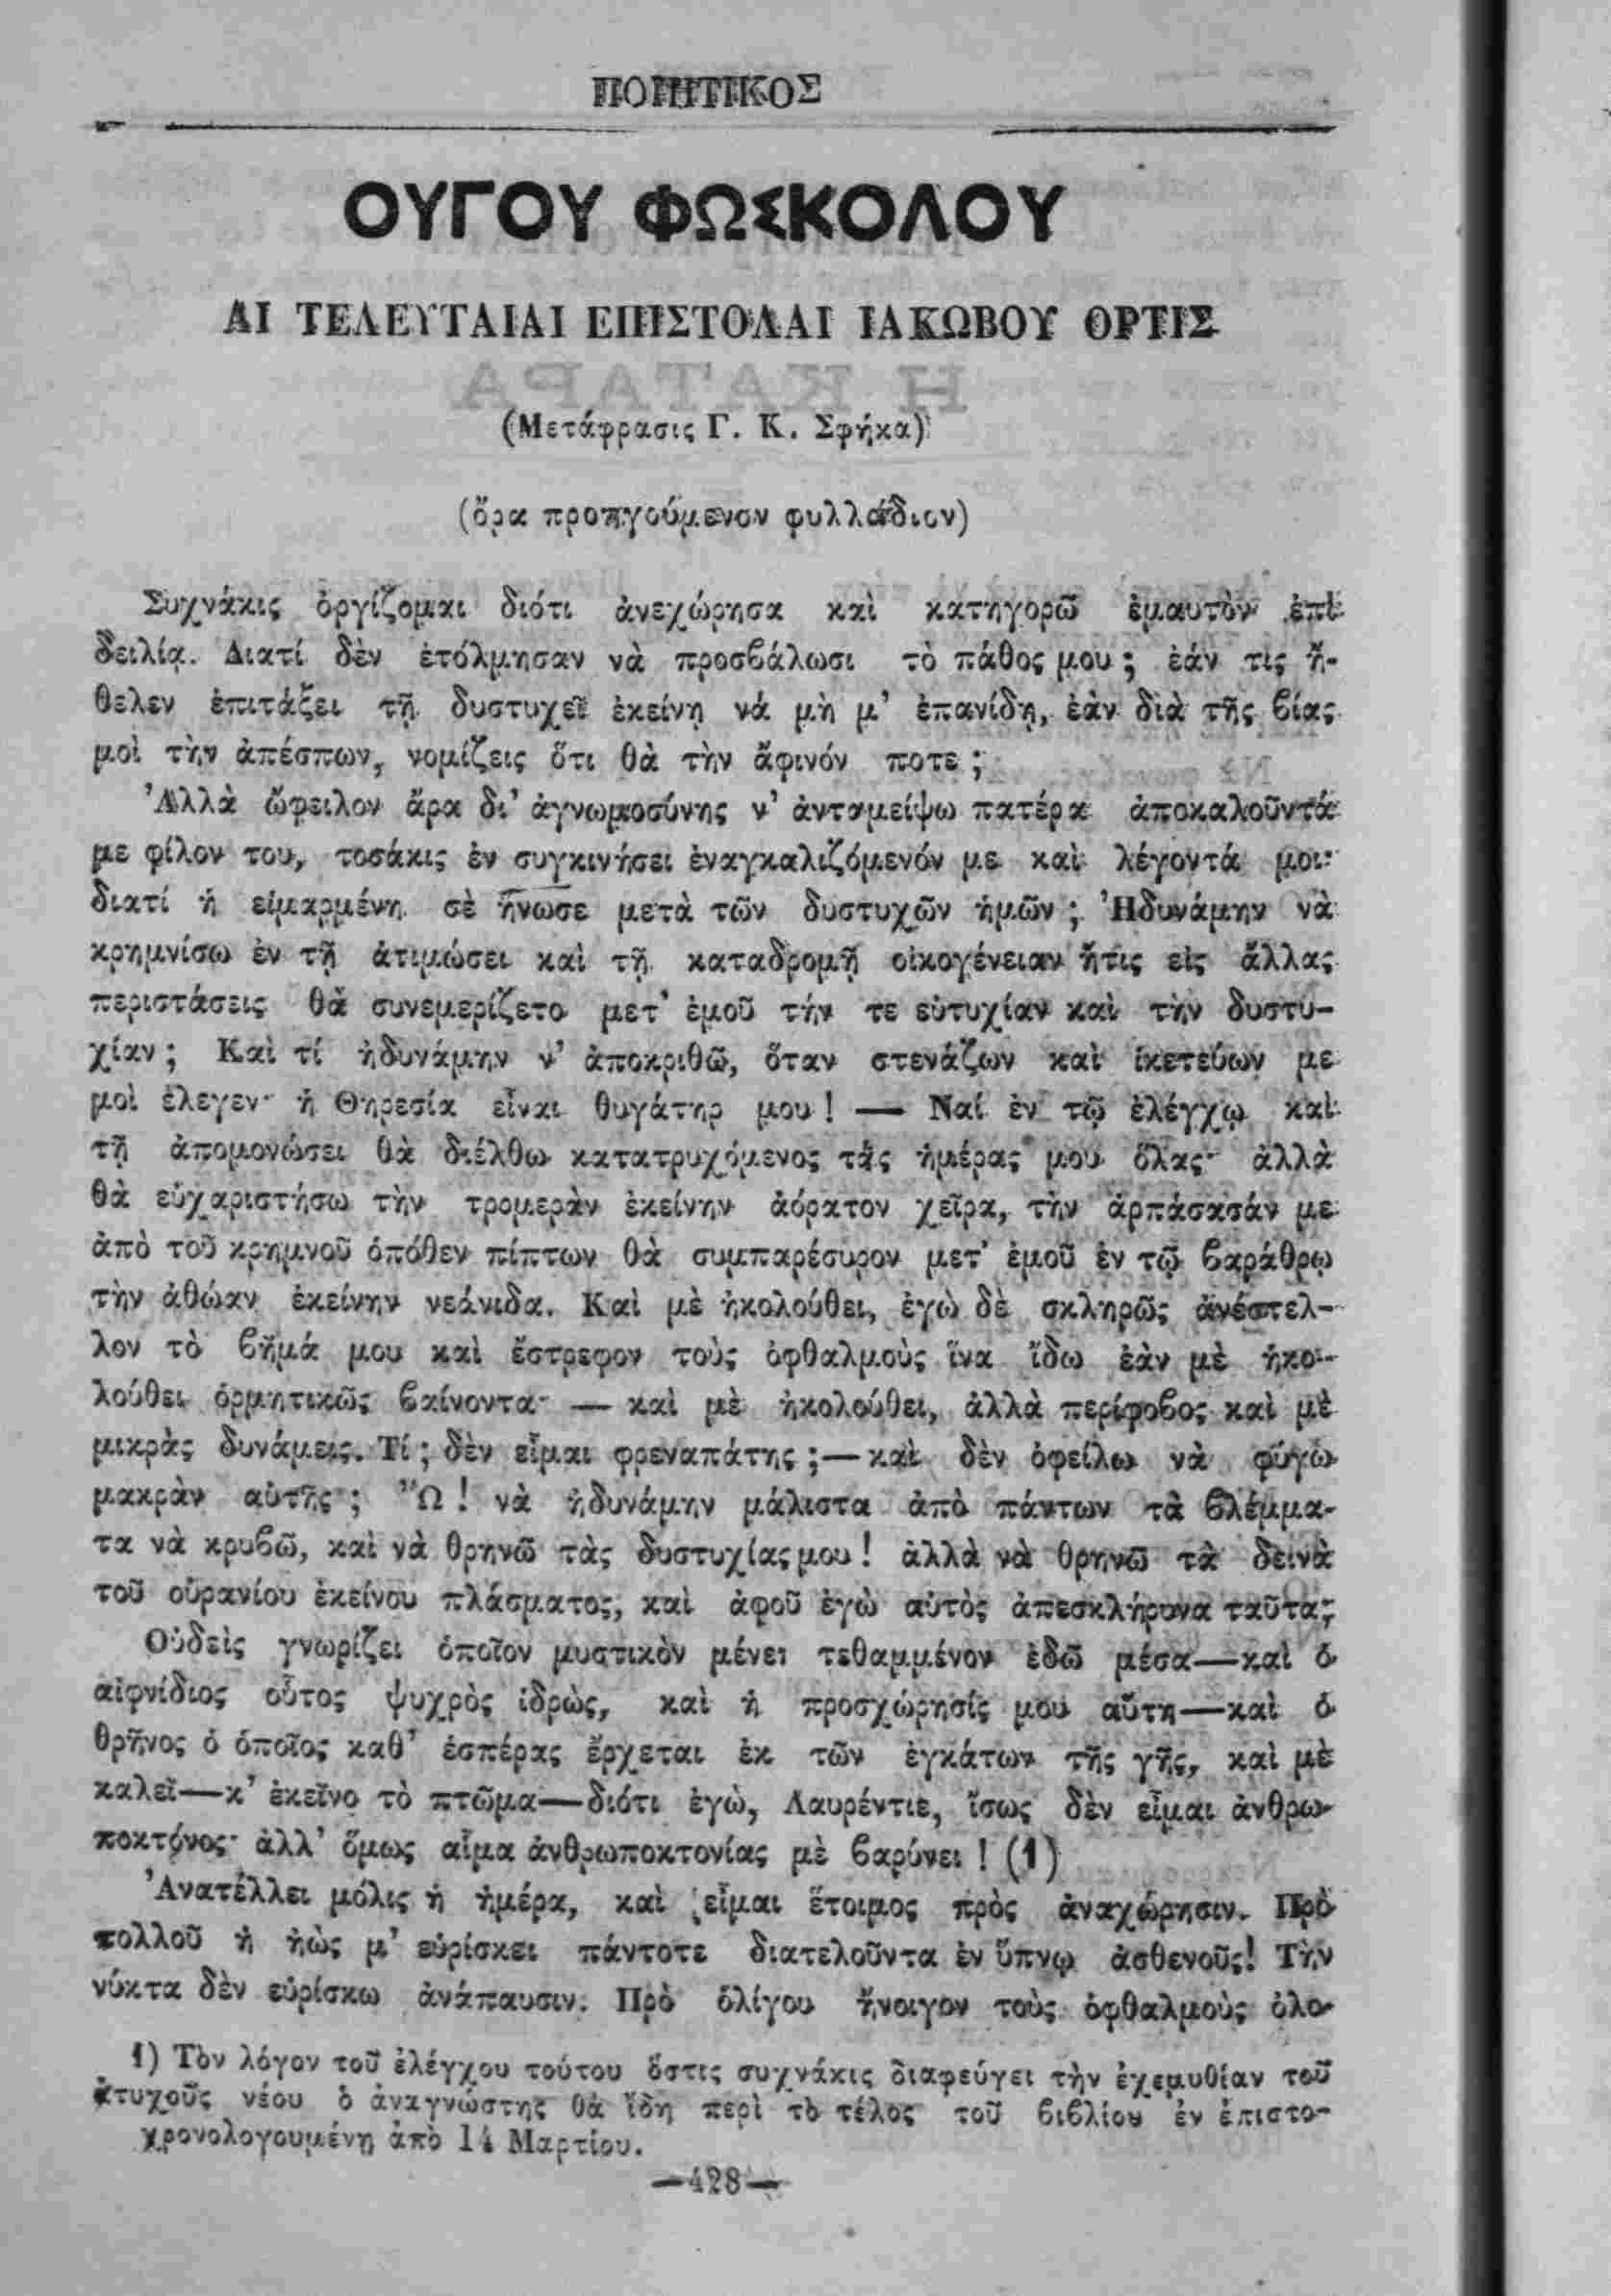 ΠΟΙΗΤΙΚΟΣ
ΟΥΓΟΥ ΦΩΣΚΟΛΟΥ
ΑΙ ΤΕΛΕΥΤΑΙΑΙ ΕΠΙΣΤΟΛΑΙ ΙΑΚΩΒΟΥ ΟΡΤΙΣ
(Μετάφρασις Γ. Κ. Σφήκα)
(ὅρα προηγούμενον φυλλάδιον)
Συχνάκις ὀργίζομαι διότι ἀνεχώρησα καὶ κατηγορῶ ἐμαυτὸν ἐπὶ
δειλίᾳ. Διατί δὲν ἐτόλμησαν νὰ προσβάλωσι τὸ πάθος μου ; ἐάν τις ἤ-
θελεν ἐπιτάξει τῇ δυστυχεῖ ἐκείνῃ νά μὴ μ’ ἐπανίδῃ, ἐὰν διὰ τῆς βίας
μοὶ τὴν ἀπέσπων, νομίζεις ὅτι θὰ τὴν ἄφινόν ποτε ;
Ἀλλὰ ὤφειλον ἄρα δι’ ἀγνωμοσύνης ν’ ἀνταμείψω πατέρα ἀποκαλοῦντά
με φίλον του, τοσάκις ἐν συγκινήσει ἐναγκαλιζόμενόν με καὶ λέγοντά μοι·
διατί ἡ εἱμαρμένη σὲ ἥνωσε μετὰ τῶν δυστυχῶν ἡμῶν ; Ἠδυνάμην νὰ
κρημνίσω ἐν τῇ ἀτιμώσει καὶ τῇ καταδρομῇ οἰκογένειαν ἥτις εἰς ἄλλας
περιστάσεις θὰ συνεμερίζετο μετ’ ἐμοῦ τήν τε εὐτυχίαν καὶ τὴν δυστυ-
χίαν ; Καὶ τί ἠδυνάμην ν’ ἀποκριθῶ, ὅταν στενάζων καὶ ἱκετεύων με
μοὶ ἔλεγεν· ἡ Θηρεσία εἶναι θυγάτηρ μου ! — Ναί ἐν τῷ ἐλέγχῳ καὶ
τῇ ἀπομονώσει θὰ διέλθω κατατρυχόμενος τὰς ἡμέρας μου ὅλας· ἀλλὰ
θὰ εὐχαριστήσω τὴν τρομερὰν ἐκείνην ἀόρατον χεῖρα, τὴν ἁρπάσασάν με
ἀπὸ τοῦ κρημνοῦ ὁπόθεν πίπτων θὰ συμπαρέσυρον μετ’ ἐμοῦ ἐν τῷ βαράθρῳ
τὴν ἀθώαν ἐκείνην νεάνιδα. Καὶ μὲ ἠκολούθει, ἐγὼ δὲ σκληρῶς ἀνέστελ-
λον τὸ βῆμά μου καὶ ἔστρεφον τοὺς ὀφθαλμοὺς ἵνα ἴδω ἐὰν μὲ ἠκο-
λούθει ὁρμητικῶς βαίνοντα· — καὶ μὲ ἠκολούθει, ἀλλὰ περίφοβος καὶ μὲ
μικρὰς δυνάμεις. Τί ; δὲν εἶμαι φρεναπάτης ;—καὶ δὲν ὀφείλω νὰ φύγω
μακρὰν αὐτῆς ; Ὢ ! νὰ ἠδυνάμην μάλιστα ἀπὸ πάντων τὰ βλέμμα-
τα νὰ κρυβῶ, καὶ νὰ θρηνῶ τὰς δυστυχίας μου ! ἀλλὰ νὰ θρηνῶ τὰ δεινὰ
τοῦ οὐρανίου ἐκείνου πλάσματος, καὶ ἀφοῦ ἐγὼ αὐτὸς ἀπεσκλήρυνα ταῦτα;
Οὐδεὶς γνωρίζει ὁποῖον μυστικὸν μένει τεθαμμένον ἐδῶ μέσα—καὶ ὁ
αἰφνίδιος οὗτος ψυχρὸς ἱδρὼς, καὶ ἡ προσχώρησίς μου αὕτη—καὶ ὁ
θρῆνος ὁ ὁποῖος καθ’ ἑσπέρας ἔρχεται ἐκ τῶν ἐγκάτων τῆς γῆς, καὶ μὲ
καλεῖ—κ’ ἐκεῖνο τὸ πτῶμα—διότι ἐγὼ, Λαυρέντιε, ἴσως δὲν εἶμαι ἀνθρω-
ποκτόνος· ἀλλ’ ὅμως αἷμα ἀνθρωποκτονίας μὲ βαρύνει ! (1)
Ἀνατέλλει μόλις ἡ ἡμέρα, καὶ εἶμαι ἕτοιμος πρὸς ἀναχώρησιν. Πρὸ
πολλοῦ ἡ ἠὼς μ’ εὑρίσκει πάντοτε διατελοῦντα ἐν ὕπνῳ ἀσθενοῦς! Τὴν
νύκτα δὲν εὑρίσκω ἀνάπαυσιν. Πρὸ ὀλίγου ἤνοιγον τοὺς ὀφθαλμοὺς ὀλο-
1) Τὸν λόγον τοῦ ἐλέγχου τούτου ὅστις συχνάκις διαφεύγει τὴν ἐχεμυθίαν τοῦ
ἀτυχοῦς νέου ὁ ἀναγνώστης θὰ ἴδῃ περὶ τὸ τέλος τοῦ βιβλίου ἐν ἐπιστο-
χρονολογουμένῃ ἀπὸ 14 Μαρτίου.
—428—